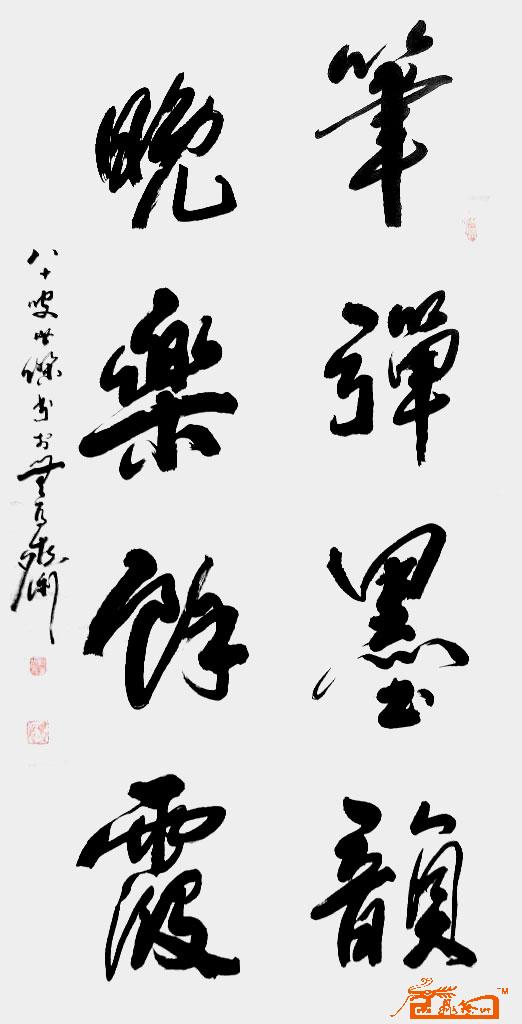 筆彈墨韻
晚樂餘霞
八十叟世傑書於